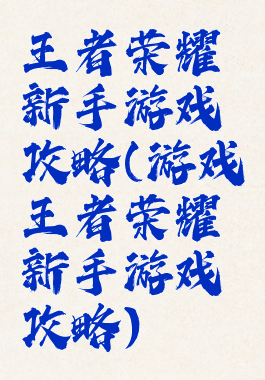 王者荣耀
新手游戏
攻略(游戏
王者荣耀
新手游戏
攻略)